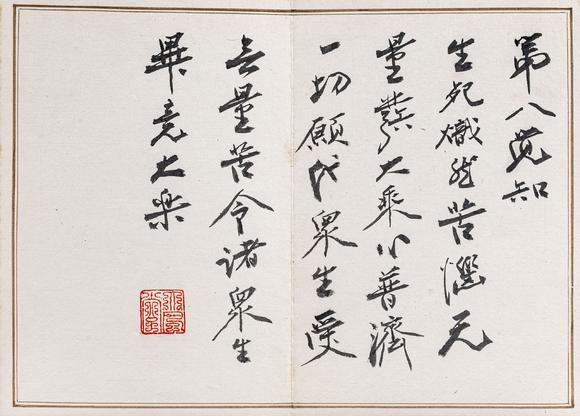 第八覚知
生死熾然苦惱无
量發大乘心普濟
一切願代眾生受
無量苦令諸眾生
畢竟大楽